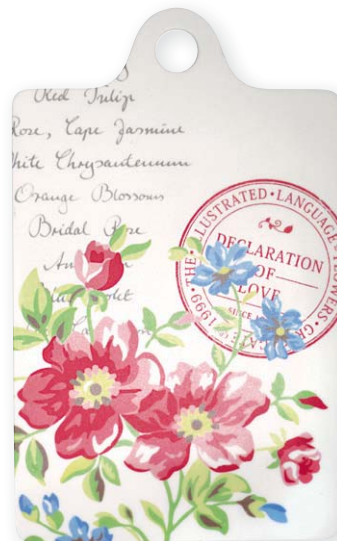 Red Tulip
Rose, Cape Jasmine
White Chrysantemum
Orange Blossoms
Bridal Rose
THE • ILLUSTRATED • LANGUAGE • FLOWERS • 1999 •
DECLARATION
OF
LOVE
SINCE